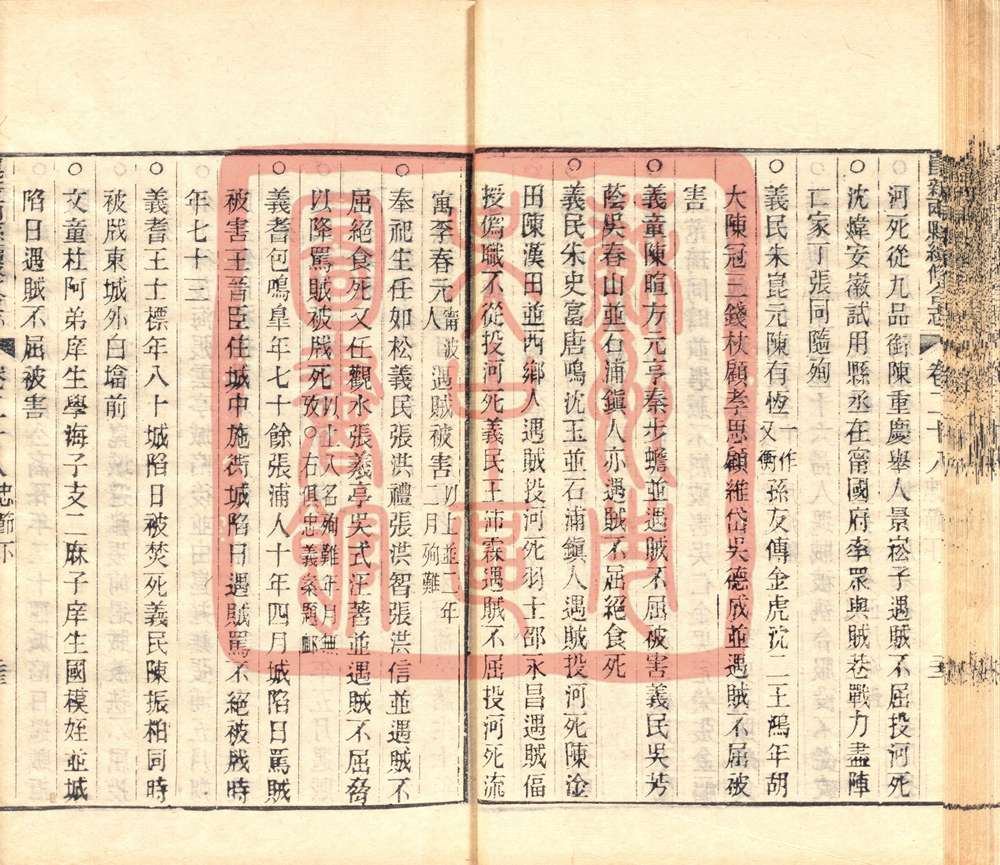 崑新兩縣續修合志 卷二十八
河死從九品銜陳重慶舉人景崧子遇賊不屈投河死
○沈煒安徽試用縣丞在甯國府率眾與賊巷戰力盡陣
亡家丁張同隨殉
○義民朱崑元陳有恆一作又衡孫友傳金虎沈二王鴻年胡
大陳冠三錢杖顧孝思顧維岱吳德成並遇賊不屈被
害
○義童陳暄方元亨秦步蟾並遇賊不屈被害義民吳芳
蔭吳春山並石浦鎭人亦遇賊不屈絕食死
○義民朱史富唐鳴沈玉並石浦鎭人遇賊投河死陳淦
田陳漢田並西鄉人遇賊投河死羽士邵永昌遇賊偪
授僞職不從投河死義民王沛霖遇賊不屈投河死流
寓李春元甯波人遇賊被害以上並二年二月殉難
○奉祀生任如松義民張洪禮張洪智張洪信並遇賊不
屈絕食死又任觀水張羲亭吳式汪蓍並遇賊不屈脅
以降罵賊被戕死以上八人名殉難年月無攷○右俱忠義案題䘏
○義耆包鳴臯年七十餘張浦人十年四月城陷日罵賊
被害王晉臣住城中施衖城陷日遇賊罵不絕被戕時
年七十三
○義耆王士標年八十城陷日被焚死義民陳振柏同時
被戕東城外白墖前
○文童杜阿弟庠生學海子支二麻子庠生國模姪並城
陷日遇賊不屈被害
卷二十八 忠節下